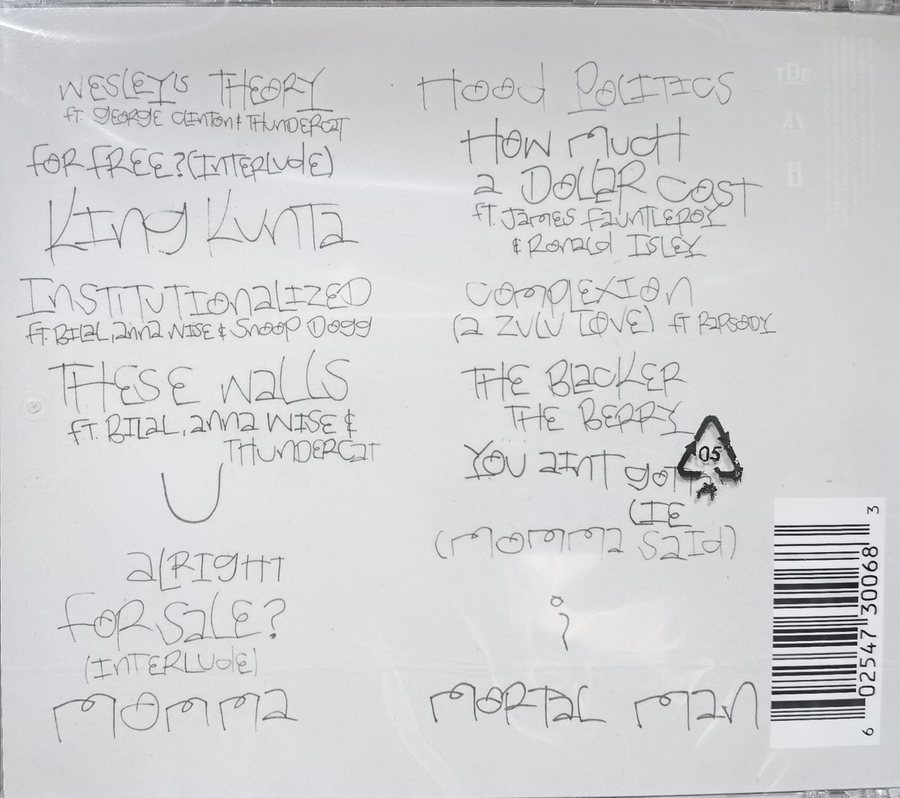 WESLEY'S THEORY
ft. GEORGE CLINTON & THUNDERCAT
FOR FREE? (INTERLUDE)
KING KUNTA
INSTITUTIONALIZED
ft. BILAL, ANNA WISE & SNOOP DOGG
THESE WALLS
ft. BILAL, ANNA WISE &
THUNDERCAT
U
ALRIGHT
FOR SALE?
(INTERLUDE)
MOMMA
HOOD POLITICS
HOW MUCH
A DOLLAR COST
ft. JAMES FAUNTLEROY
& RONALD ISLEY
COMPLEXION
(A ZULU LOVE) ft RAPSODY
THE BLACKER
THE BERRY
YOU AINT GOTTA
LIE
(MOMMA SAID)
i
MORTAL MAN
05
TDE
6 02547 30068 3